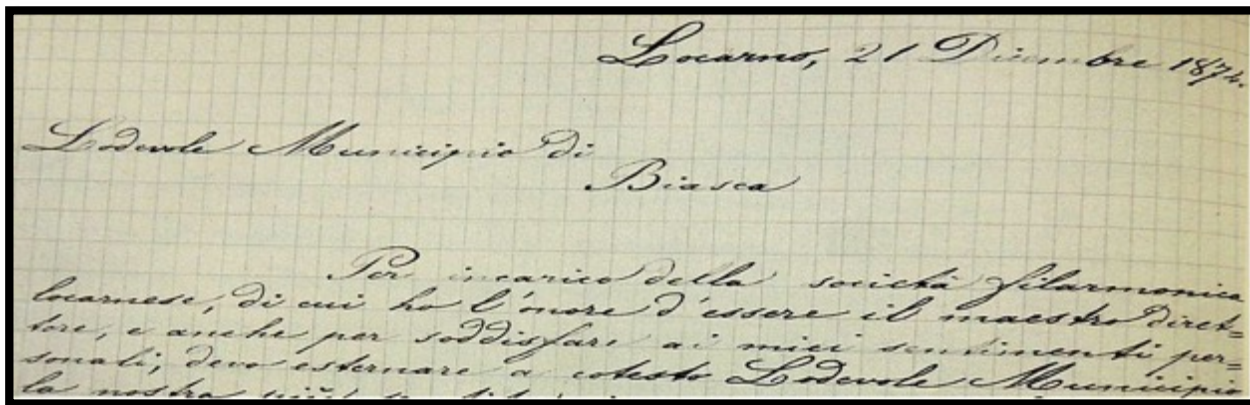 Locarno, 21 Dicembre 1874.
Lodevole Municipio di
Biasca
Per incarico della società filarmonica
locarnese, di cui ho l'onore d'essere il maestro diret=
tore, e anche per soddisfare ai miei sentimenti per=
sonali, devo esternare a cotesto Lodevole Municipio
la nostra più